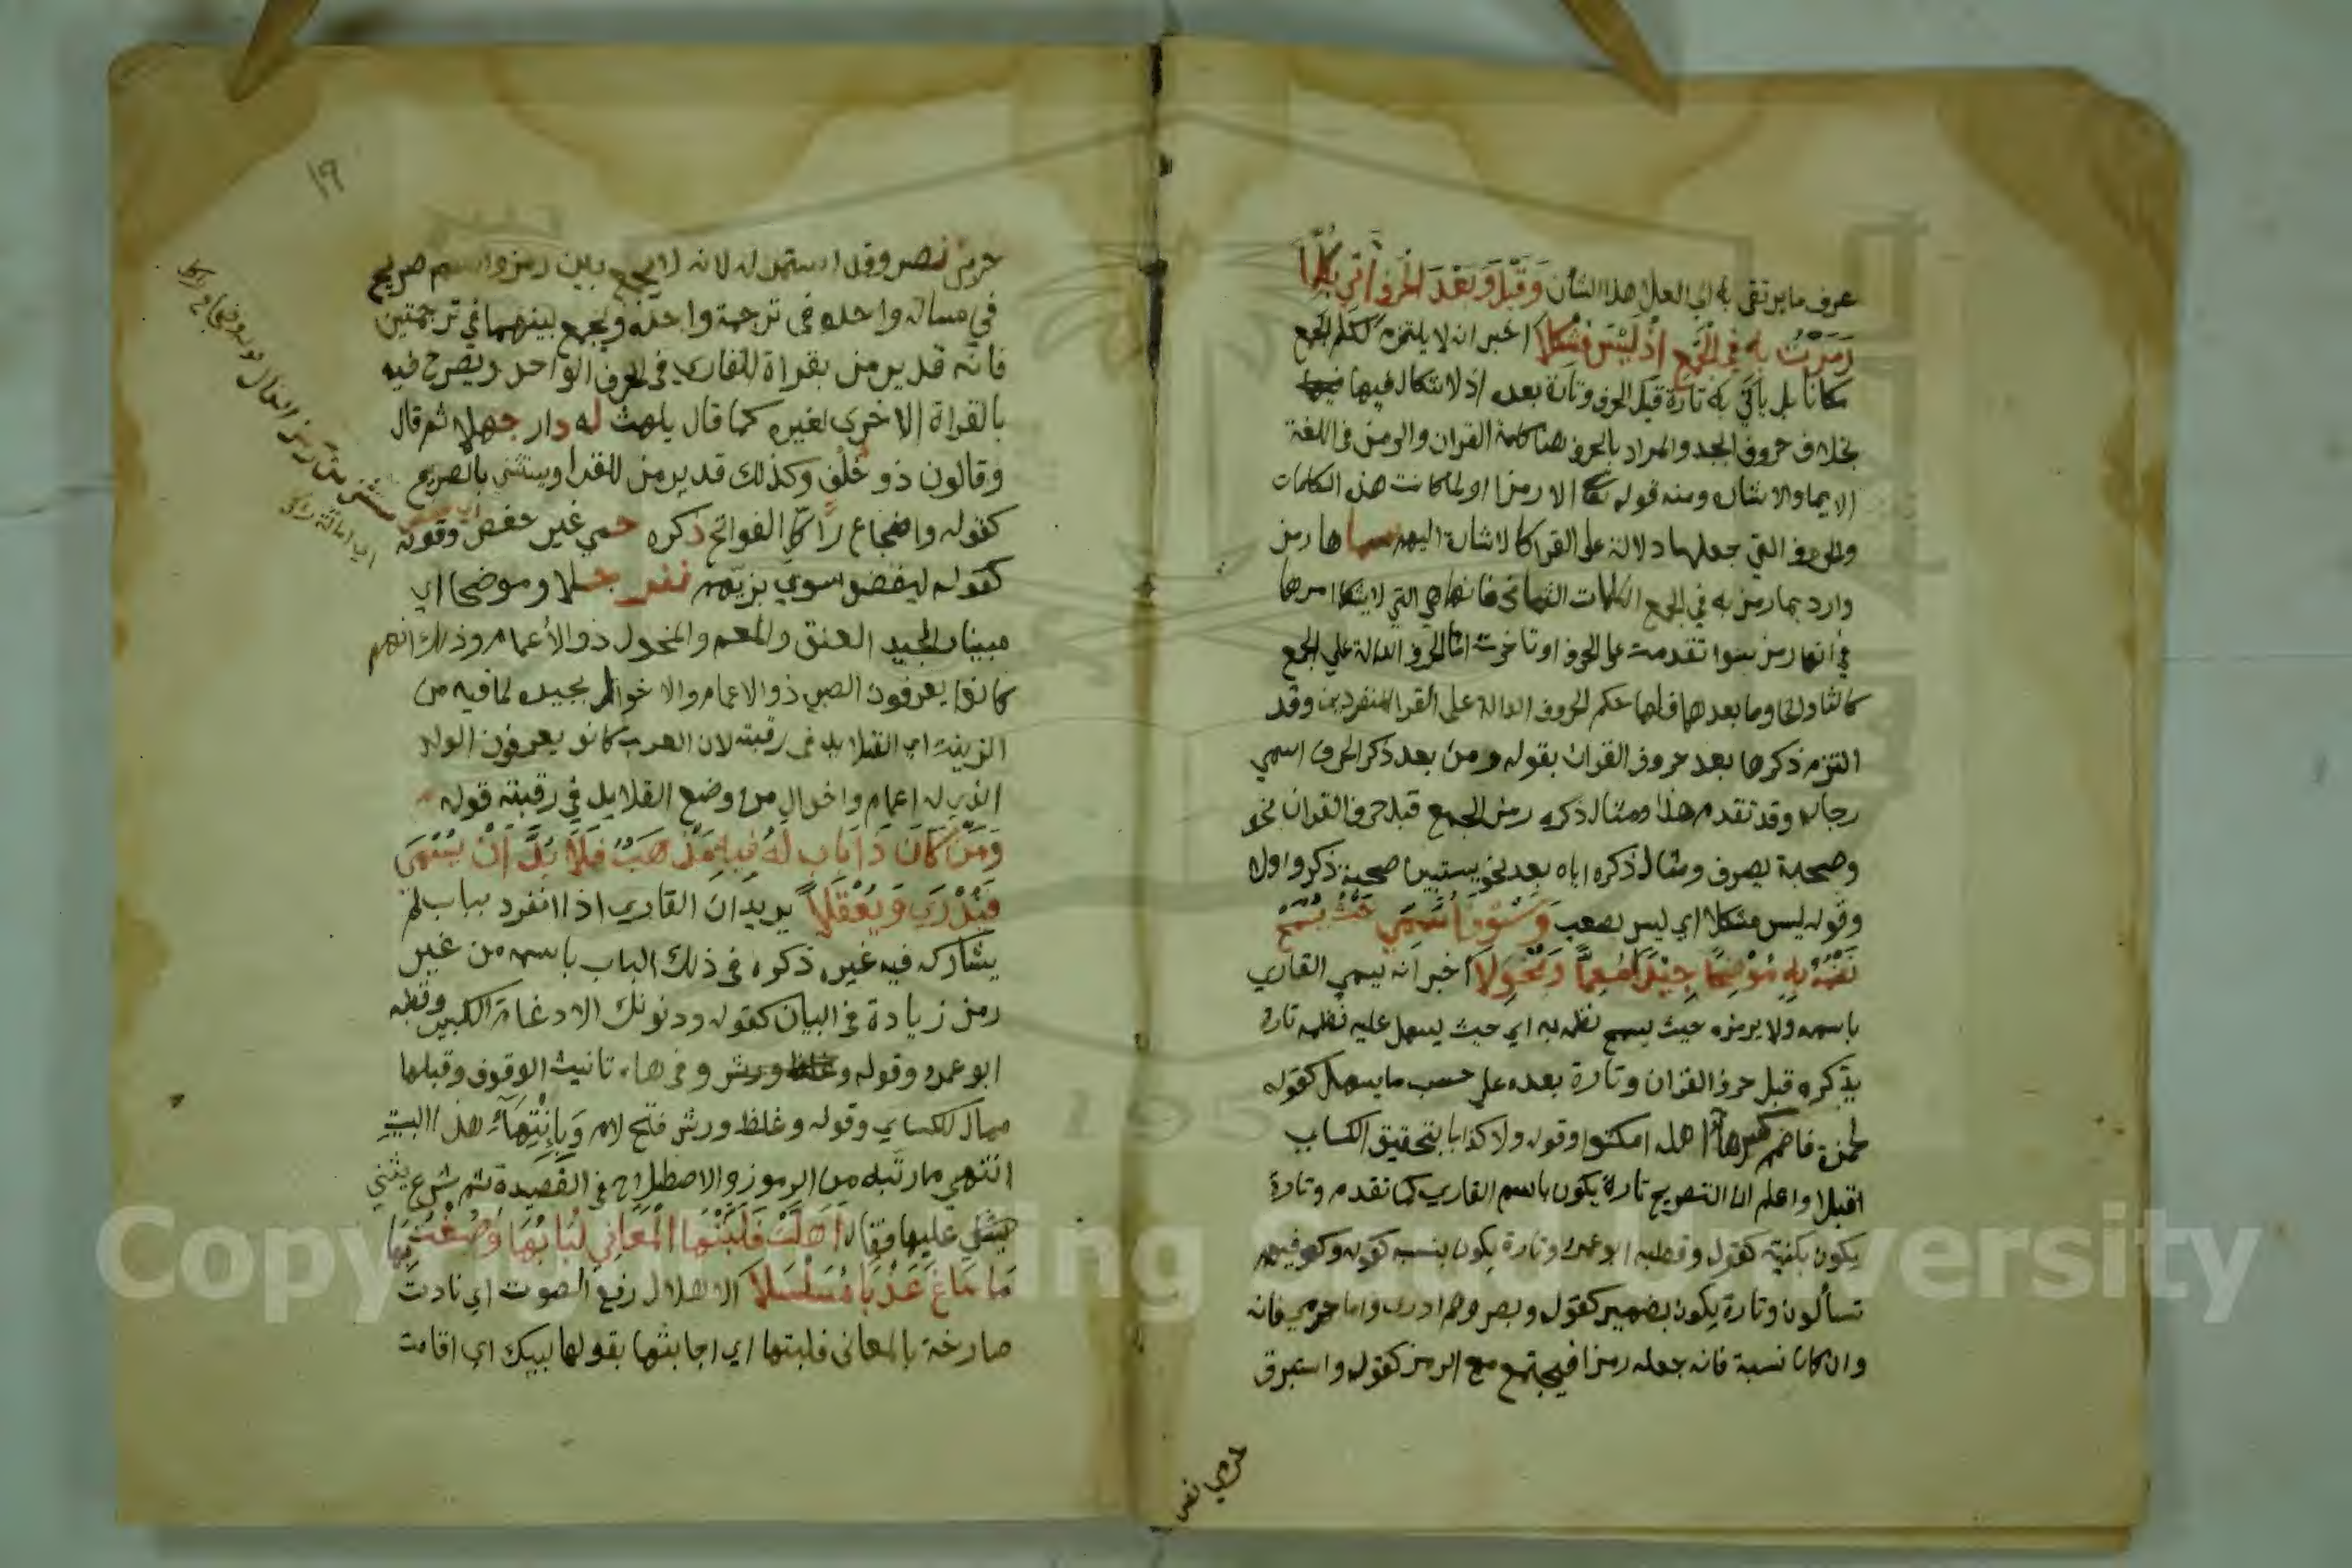 عرف ما يرتقى به الى العلا هذا الشان وَقَبْلَ وَبَعْدَ الحَرْفِ آتِي بِكُلِّمَا
رَمَزْتُ بِهِ فِي الجَمْعِ إِذْ لَيْسَ مُشْكِلَا اخبر انه لا يلتزم لكلم الجمع
مكانا بل ياتي به تارة قبل الحرف وتارة بعده اذ لا اشكال فيها
بخلاف حروف ابجد والمراد بالحرف هنا كلمة القران والرمز في اللغة
الايما والاشاره ومنه قوله تعالى الا رمزا ولما كانت هذه الكلمات
والحروف التي جعلها دلالة على القرا كالاشارة اليهم سماها رمز
واراد بما رمز به في الجمع الكلمات الثماني فانها هي التي لا يشكل امرها
في انها رمز سوا تقدمت على الحرف او تاخرت اما الحروف الدالة علي الجمع
كالثا والخا وما بعدهما فلها حكم الحروف الدالة على القرا المنفردين وقد
التزم ذكرها بعد حروف القران بقوله ومن بعد ذكر الحرف اسمي
رجاله وقد تقدم هذا ومثال ذكره رمز الجمع قبل حرف القران نحو
وصحبة يصرف ومثال ذكره اياه بعد نحو يستبين صحبة ذكروا ولا
وقوله ليس مشكلا اي ليس بصعب وَسَوْفَ أُسَمِّي حَيْثُ يَسْمَحُ
نَظْمُهُ بِهِ مُوضِحًا جِيدًا مُعَمًّا وَمُخْوَلَا اخبر انه يسمي القاري
باسمه ولا يرمزه حيث يسمح نظمه به اي حيث يسهل عليه نظمه تارة
يذكره قبل حرف القران وتارة بعده علي حسب ما يسهل كقوله
لحمزة فاضمم كسرها اهله امكثوا وقوله ولا كذابا بتحقيق الكساي
اقبلا واعلم ان التصريح تارة يكون باسم القاري كما تقدم وتارة
يكون بكنيته كقوله وقطبه ابو عمرو وتارة يكون بنسبه كقوله وكوفيهم
تسألون وتارة يكون بضمير كقوله وبصروهم ادرى واما حرمي فانه
وان كان نسبة فانه جعله رمزا فيجتمع مع الرمز كقوله واستبرق
حرمي نصر
١٩
حرمي نصر وقد استمر له انه لا يجمع بين رمز واسم صريح
في مساله واحده في ترجمة واحده ويجمع بينهما في ترجمتين
فانه قد يرمز بقراة القاري في الحرف الواحد ويصرح فيه
بالقراة الاخرى لغيره كما قال يلهث له دار جهلا ثم قال
وقالون ذو خلف وكذلك قد يرمز للقرا ويستثني بالصريح
كقوله واضجاع را كل الفواتح ذكره حمي غير حفص وقوله
كقوله ليقضوا سوي بزيهم نفر جلا وموضحا اي
مبينا والجيد العنق والمعم والمخول ذو الاعمام وذلك انهم
كانوا يعرفون الصبي ذو الاعمام والاخوال بجيده لما فيه من
الزينة اي القلايد في رقبته لان العرب كانو يعرفون الولد
الذي له اعمام واخوال من وضع القلايد في رقبته قوله
وَمَنْ كَانَ ذَا بَابٍ لَهُ فِيهِ مَذْهَبٌ فَلَا بُدَّ أَنْ يُسْمَى
فَيُدْرَى وَيُعْقَلَا يريد ان القاري اذا انفرد بباب لم
يشاركه فيه غيره ذكره في ذلك الباب باسمه من غير
رمز زيادة في البيان كقوله ودونك الادغام الكبير وقطبه
ابو عمرو وقوله وفي هاء تانيث الوقوف وقبلها
ممال الكساي وقوله وغلظ ورش فتح لام وَبِانْتِهَاءِ هذا البيت
انتهى ما رتبه من الرموز والاصطلاح في القصيدة ثم شرع يثني
عليها فقال أَهَلَّتْ فَلَبَّتْهَا المَعَانِي لُبَابُهَا وَصُغْتُ بِهَا
مَا سَاغَ عَذْبًا مُسَلْسَلَا الاهلال رفع الصوت اي نادت
صارخة بالمعاني فلبتها اي اجابتها بقولها لبيك اي اقامت